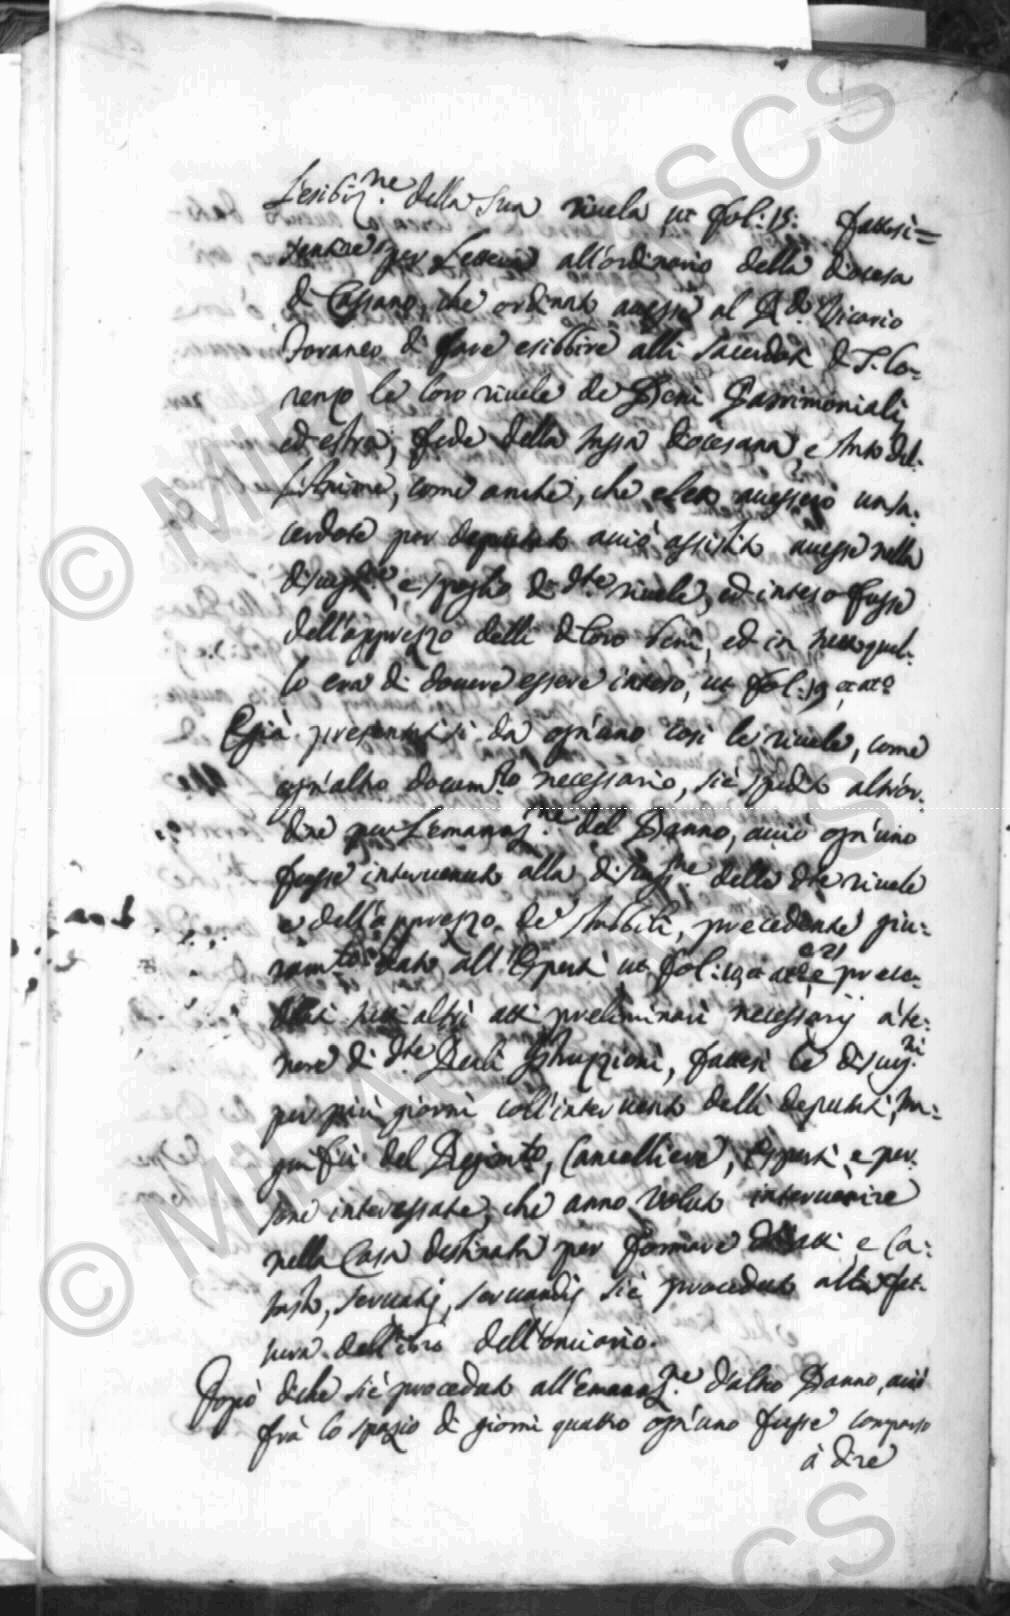 L'esibiz.ne della sua rivela ut fol: 15: fattosi=
per Lettera all'ordinario della Diocesa
di Cassano, che ordinato avesse al R.do Vicario
Foraneo di fare esibbire alli Sacerdoti di S. Lo-
renzo le loro rivele de Beni Patrimoniali,
ed estra, fede della tassa Diocesana, e stato del-
l'Anime, come anche, che eletto avessero un Sa-
cerdote per deputato acciò assistito avesse nella
discuss.ne e spoglio di d.te rivele, ed inteso fusse
dell'apprezzo delli di loro beni, ed in tutto quel-
lo era di dovere essere inteso, ut fol: 19 et at.o
E già presentatesi da ogn'uno così le rivele, come
ogn'altro docum.to necessario, si è spedito altr'or-
dine per l'emanaz.ne del Banno, acciò ogn'uno
fusse intervenuto alla discuss.ne delle d.te rivele
e dell'apprezzo de' stabbili, precedente giu-
ram.to dato all'Esperti ut fol: 19 et at.o e 21 prece-
duti tutti altri atti preliminari necessarij a te-
nore di d.te Reali Istruzzioni, fattesi le discuss.ni
per più giorni coll'intervento delli deputati, Ma-
g.ci del Regim.to, Cancelliere, Esperti, e per-
sone interessate, che anno voluto intervenire
nella Casa destinata per formare atti, e Ca-
tasto, servatis, servandis si è proceduto alla fat-
tura dell'ibro dell'onciario.
Dopò di che si è proceduto all'Emanaz.ne d'altro Banno, acciò
frà lo spazio di giorni quattro ogn'uno fusse comparso
à dire
© MiRABILE ASCS
© MiRABILE ASCS